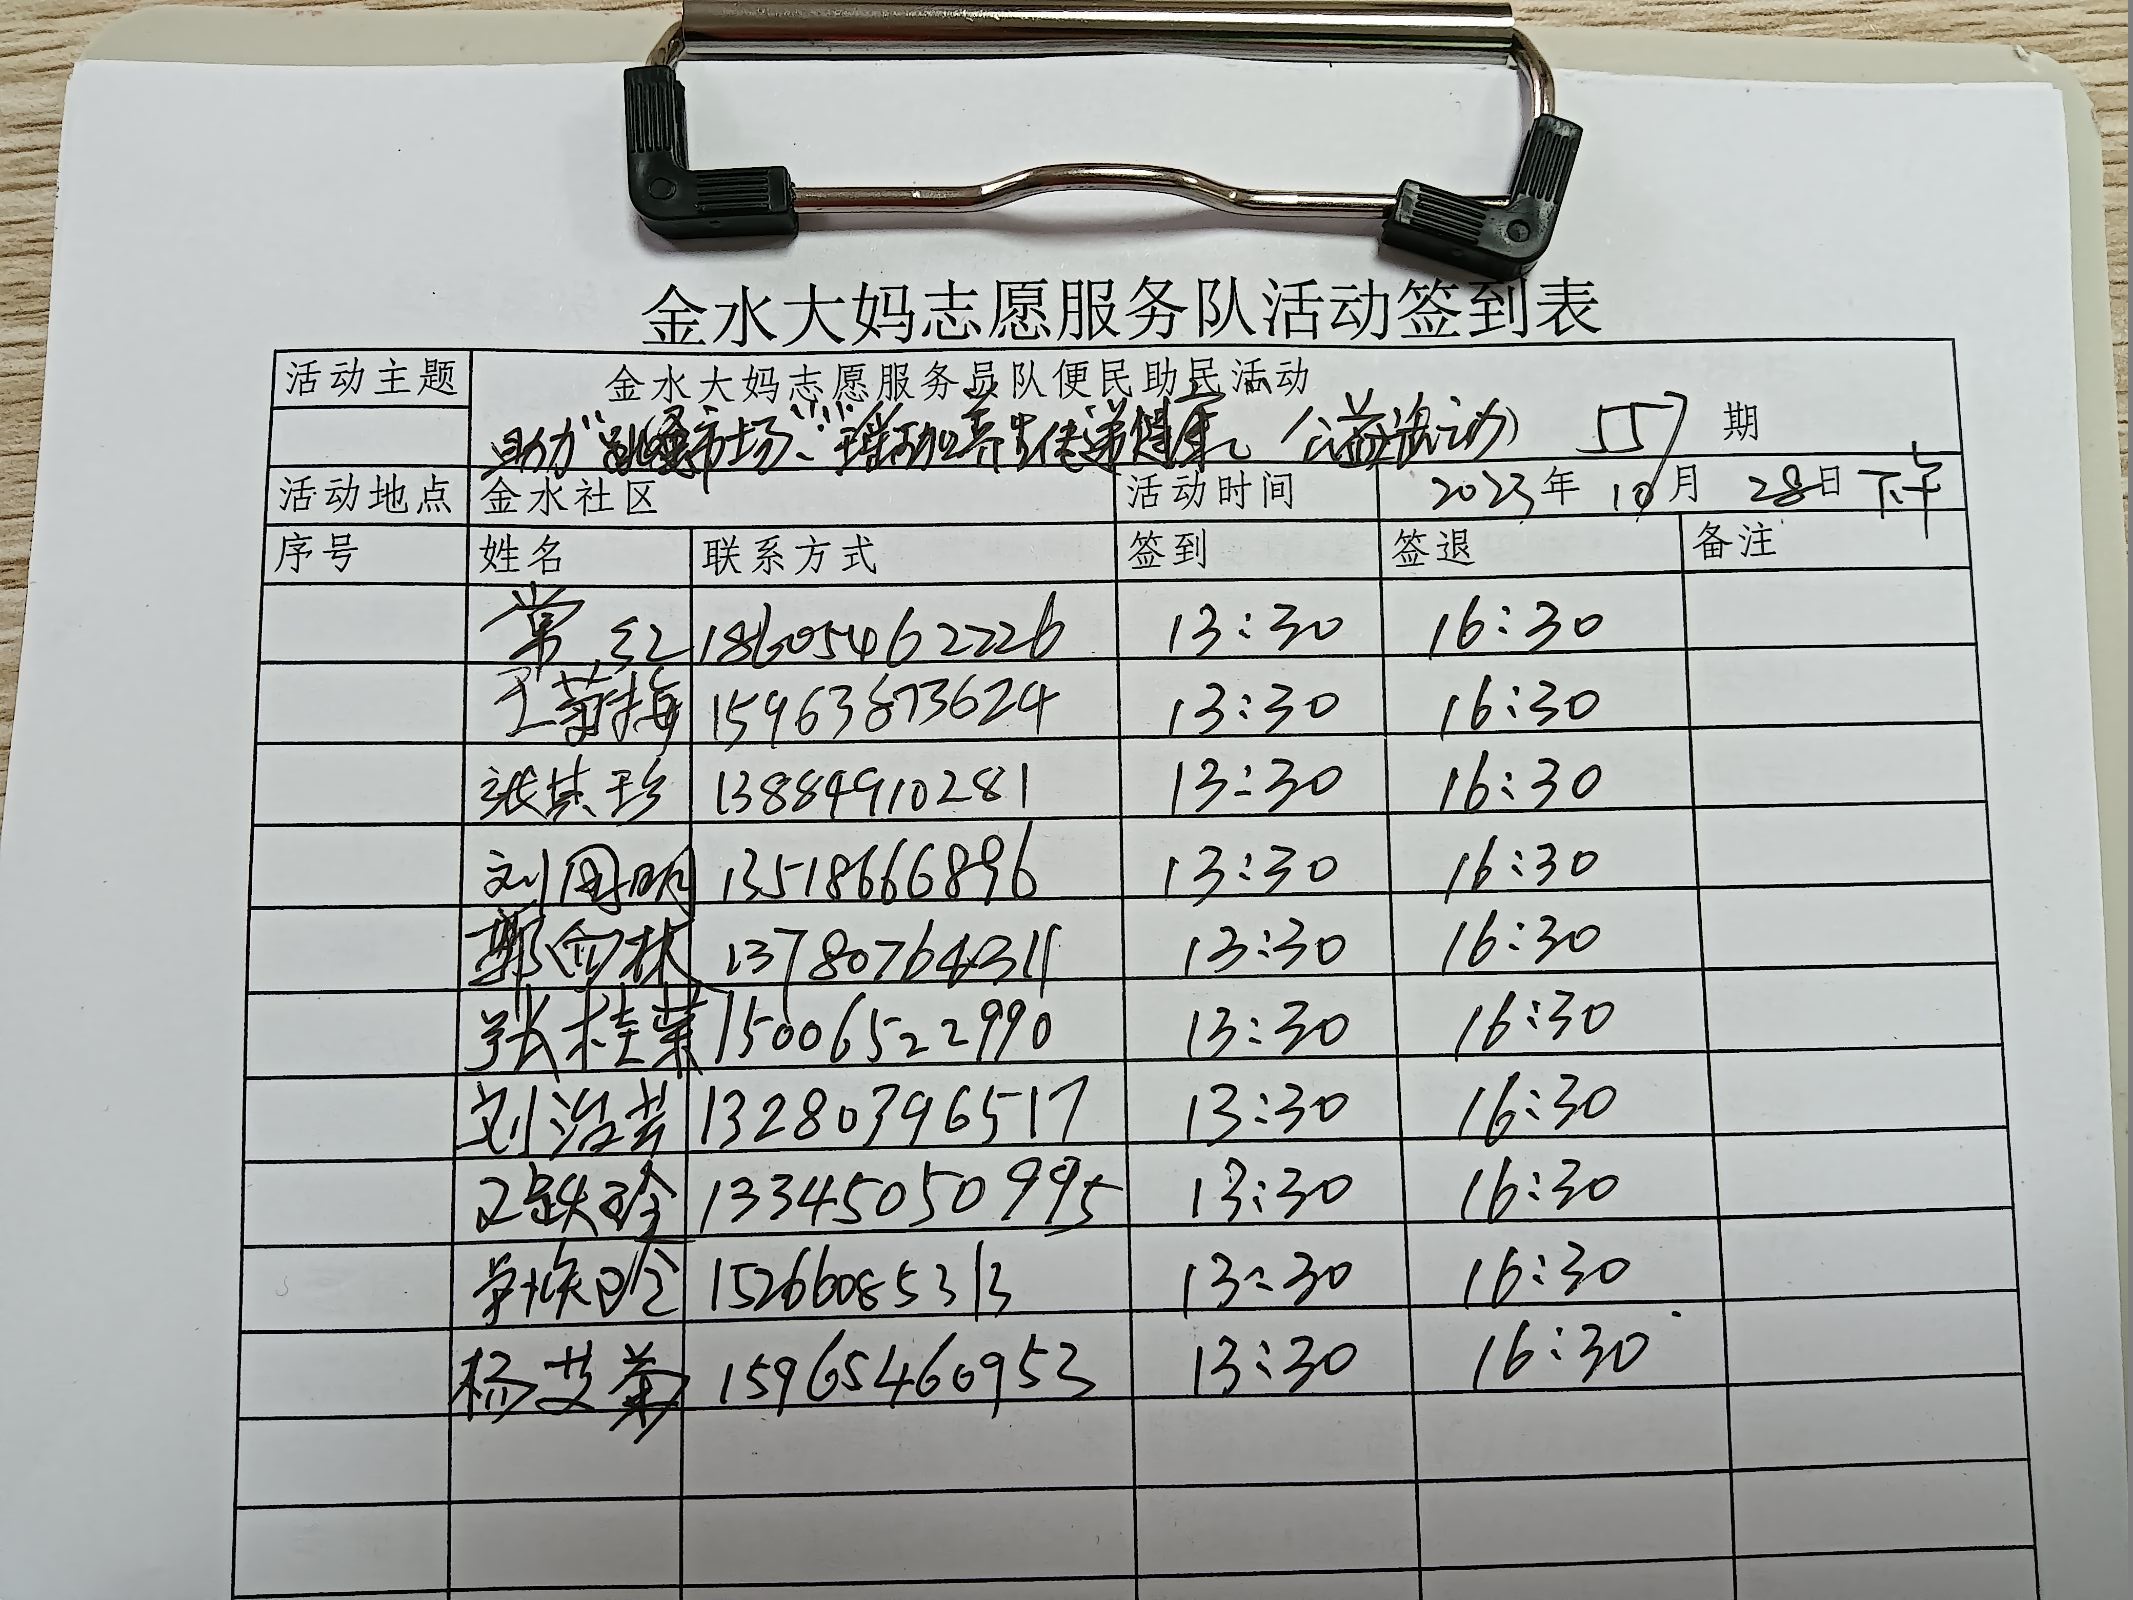 金水大妈志愿服务队活动签到表
活动主题 金水大妈志愿服务员队便民助民活动
助力“跳蚤市场”、“瑜珈养生传递健康” 公益活动 557 期
活动地点 金水社区 活动时间 2023年 10月 28日 下午
序号 姓名 联系方式 签到 签退 备注
常红 18605462226 13:30 16:30
王菊梅 15963873624 13:30 16:30
张其珍 13884910281 13:30 16:30
刘国明 13518666896 13:30 16:30
郭向林 13780764311 13:30 16:30
张桂菜 15006522990 13:30 16:30
刘治芸 13280396517 13:30 16:30
13345050995 13:30 16:30
15266085313 13:30 16:30
杨艾菊 15965460953 13:30 16:30